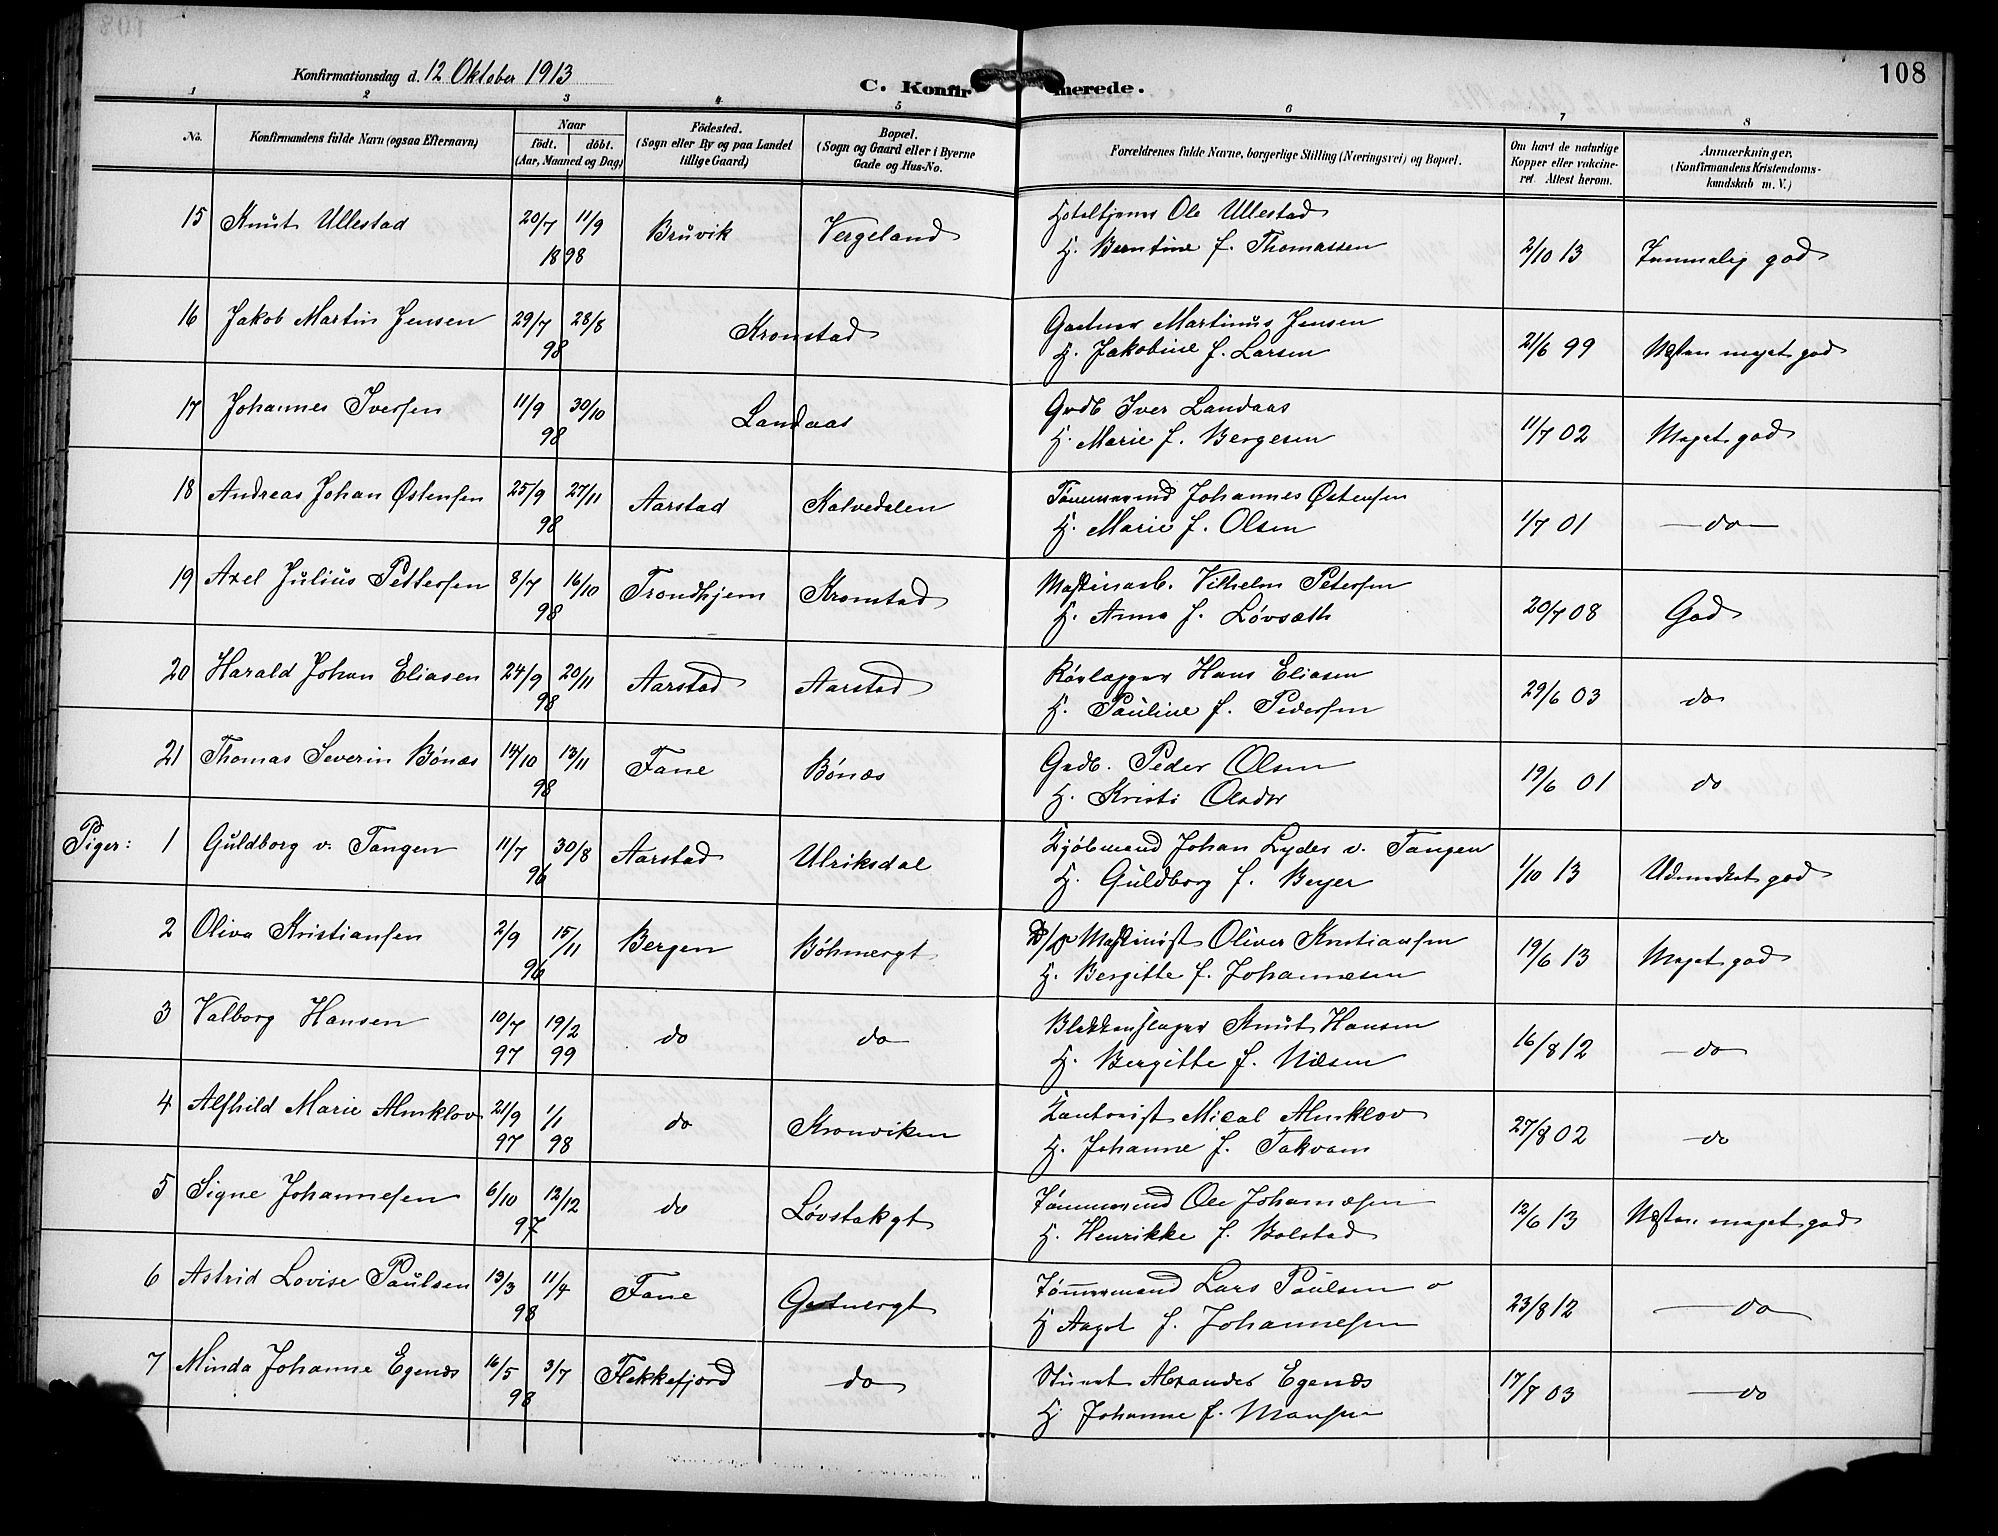 108
Konfirmationsdag d. 12 Oktober 1913
C. Konfirmerede.
1 2 3 4 5 6 7 8
No.
Konfirmandens fulde Navn (ogsaa Efternavn)
Naar
født. døbt.
(Aar, Maaned og Dag)
Fødested.
(Sogn eller By og paa Landet
tillige Gaard)
Bopæl.
(Sogn og Gaard eller i Byerne
Gade og Hus-No.
Forældrenes fulde Navne, borgerlige Stilling (Næringsvei) og Bopæl.
Om havt de naturlige
Kopper eller vakcine-
ret. Attest herom.
Anmærkninger.
(Konfirmandens Kristendoms-
kundskab m. V.)
15 Knut Ullestad 20/7 11/9 Bruvik Vergeland Hoteltjener Ole Ullestad
1898 H. Berntine f. Thomassen 2/10 13 Temmelig god
16 Jakob Martin Jensen 29/7 28/8 Kronstad Gartner Martinus Jensen
98 H. Jakobine f. Larsen 21/6 99 Næsten meget god
17 Johannes Iversen 11/9 30/10 Landaas Grdb Iver Landaas
98 H. Marie f. Bergesen 11/7 02 Meget god
18 Andreas Johan Østensen 25/9 27/11 Aarstad Kalvedalen Tømmermd Johannes Østensen
98 H. Marie f. Olsen 1/7 01 — do —
19 Axel Julius Pettersen 8/7 16/10 Trondhjem Kronstad Maskinarb. Vilhelm Petersen
98 H. Anna f. Løvsæth 20/7 08 God
20 Harald Johan Eliasen 24/9 20/11 Aarstad Aarstad Rørlægger Hans Eliasen
98 H. Pauline f. Pedersen 29/6 03 do
21 Thomas Severin Bønæs 14/10 13/11 Fane Bønæs Grdb. Peder Olsen
98 H. Kristi Olsdtr 19/6 01 do
Piger: 1 Guldborg v. Tangen 11/7 30/8 Aarstad Ulriksdal Kjøbmand Johan Lyder v. Tangen
96 H. Guldborg f. Beyer 1/10 13 Udmerket god
2 Oliva Kristiansen 2/9 15/11 Bergen Bøhmergt Maskinist Oliver Kristiansen
96 H. Bergitte f. Johannesen 19/6 13 Meget god
3 Valborg Hansen 10/7 19/2 do do Blekkenslager Knut Hansen
97 99 H. Bergitte f. Nilsen 16/8 12 — do —
4 Alfhild Marie Almklov 21/9 1/1 do Kronviken Kontorist Mikal Almklov
97 98 H. Johanne f. Takvam 27/8 02 — do
5 Signe Johannesen 6/10 12/12 do Løvstakgt Tømmermd Ole Johannesen
97 H. Henrikke f. Bolstad 12/6 13 Næsten meget god
6 Astrid Lovise Paulsen 13/3 11/4 Fane Gartnergt Tømmermand Lars Paulsen o
98 H Aagot f. Johannesen 23/8 12 — do
7 Minda Johanne Egenæs 16/5 3/7 Flekkefjord do Stuert Alexander Egenæs
98 H Johanne f. Monsen 17/7 03 — do